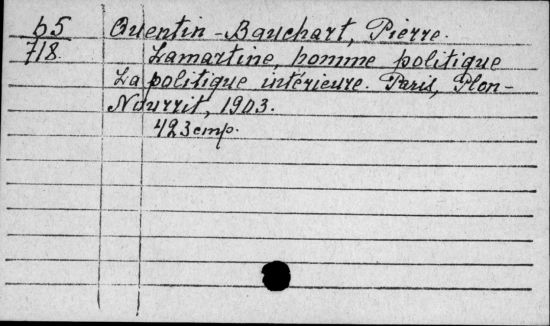 65 Quentin-Bauchart, Pierre.
718. Lamartine, homme politique
La politique intérieure. Paris, Plon-
Nourrit, 1903.
423 стр.